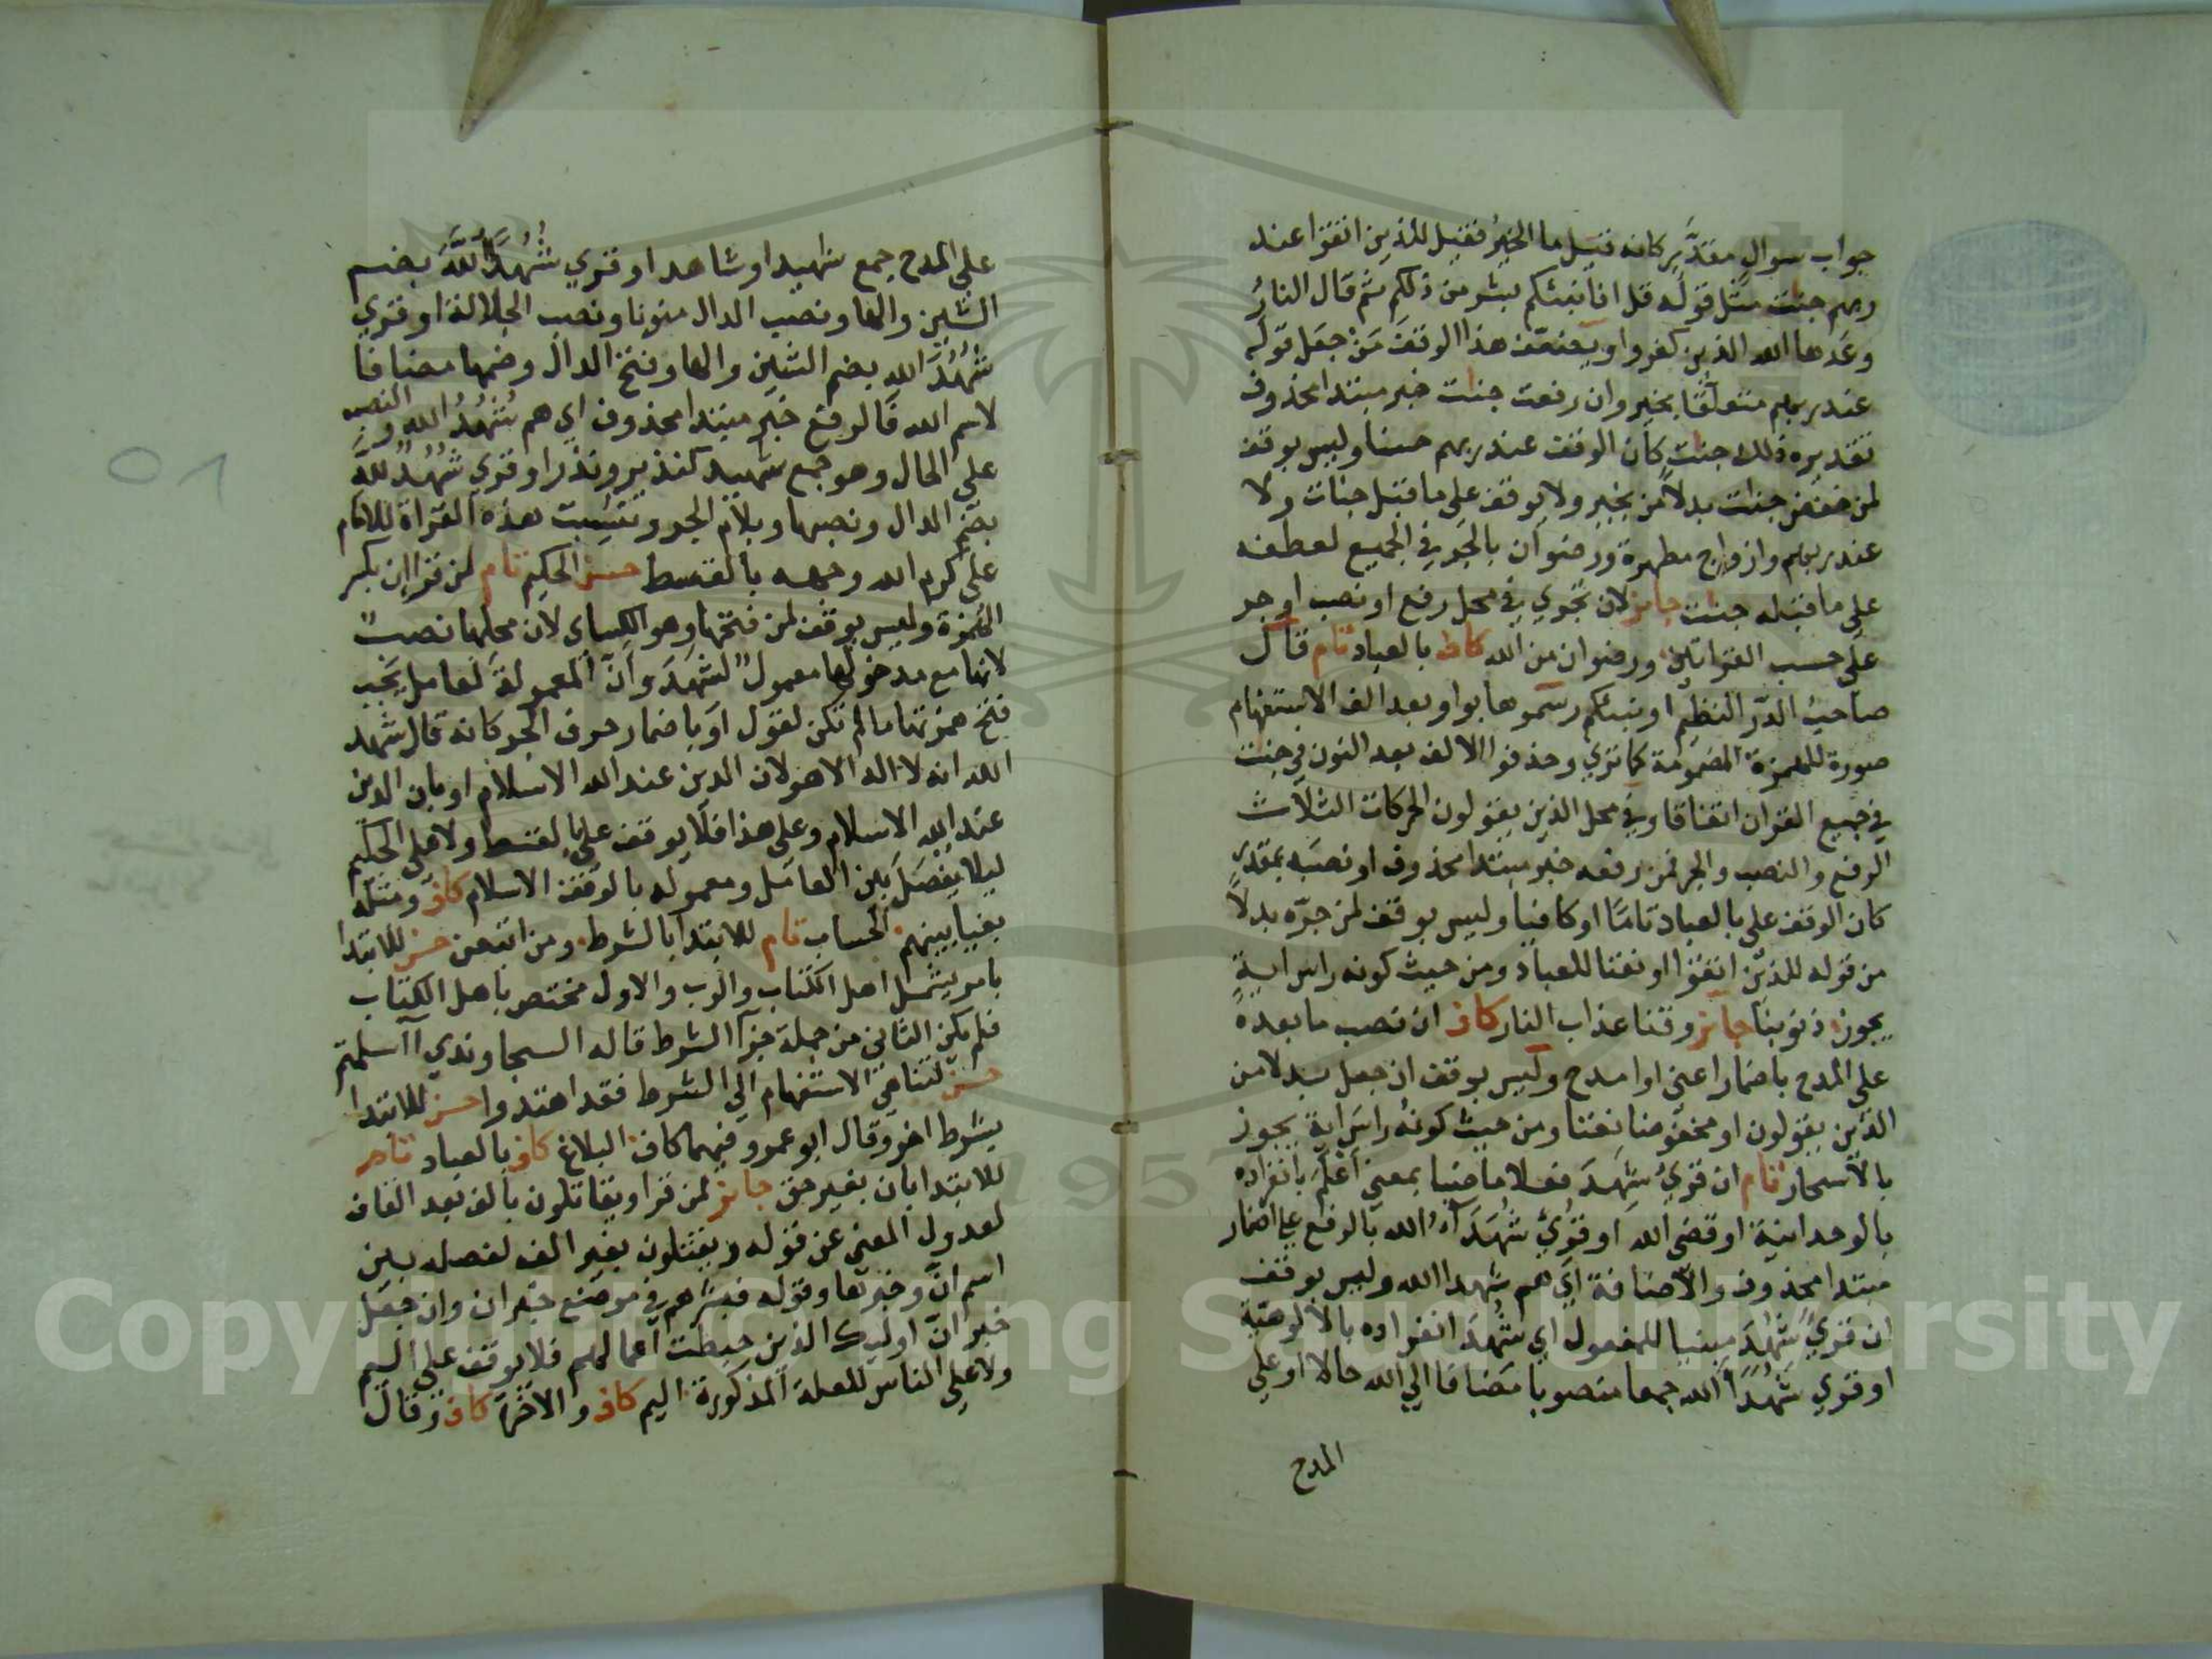 جواب سوال مقدَّر كانه قيل ما الخيرُ فقيل للذين اتقوا عند
ربهم جنت مثل قوله قل افانبئكم بشر من ذلكم ثم قال النارُ
وعدها الله الذين كفروا ويضعّف هذا الوقف مَنْ جعل قوله
عند ربهم متعلقا بخير وان رفعت جنات خبر مبتدا محذوف
تقديره ذلك جنت كان الوقف عند ربهم حسنا وليس بوقف
لمن خفض جنات بدلا من بخير ولا يوقف على ما قبل جنات ولا
عند ربهم وازواج مطهرة ورضوان بالجر في الجميع لعطفه
على ما قبله جنات جايز لان تجري في محل رفع او نصب او جر
على حسب القراتين ورضوان من الله كاف بالعباد تام قال
صاحب الدّر النظيم اونبئكم رسموها بواو بعد الف الاستفهام
صورة للهمزة المضمومة كما ترى وحذفوا الالف بعد النون في جنت
في جميع القران اتفاقا وفي محل الذين يقولون الحركات الثلاث
الرفع والنصب والجر فمن رفعه خبر مبتدا محذوف او نصبه بمقدر
كان الوقف على بالعباد تامّا او كافيا وليس بوقف لمن جرّه بدلا
من قوله للذين اتقوا او نعتا للعباد ومن حيث كونه راس اية
يجوز ذنوبنا جايز وقنا عذاب النار كاف ان نصب ما بعده
على المدح باضمار اعنى او امدح وليس بوقف ان جعل بدلا من
الذين يقولون او مخفوضا نعتا ومن حيث كونه راس اية يجوز
بالاسحار تام ان قرئ شهد فعلا ماضيا بمعنى اعلم بانفراده
بالوحدانية او قضى الله او قرئ شُهَدَآءُ الله بالرفع على اضمار
مبتدا محذوف والاضافة اي هم شهدا الله وليس بوقف
ان قرئ شُهِدَ مبنيا للمفعول اي شُهِدَ انفراده بالالوهية
او قرئ شُهَدَآءَ الله جمعا منصوبا مضافا الى الله حالا او على
المدح
على المدح جمع شهيد او شاهد او قرئ شُهُدًا اللهَ بضم
الشين والها ونصب الدال منونا ونصب الجلالة او قرئ
شُهُدُ الله بضم الشين والها وفتح الدال وضمها مضافا
لاسم الله فالرفع خبر مبتدا محذوف اي هم شُهُدُ الله والنصب
على الحال وهو جمع شهيد كنذير ونذر او قرئ شُهُدٌ للهِ
بضم الدال ونصبها وبلام الجر ونسبت هذه القراة للامام
على كرم الله وجهه بالقسط حسن الحكيم تام لمن قرا ان بكسر
الهمزة وليس بوقف لمن فتحها وهو الكساى لان محلها نصب
لانها مع مدخولها معمول لشهد وانّ المعمولة لعامل يجب
فتح همزتها ما لم تكن لقول او باضمار حرف الجر كانه قال شهد
الله انه لا اله الا هو لان الدين عند الله الاسلام او بان الدين
عند الله الاسلام وعلى هذا فلا يوقف على بالقسط ولا على الحكيم
ليلا يفصل بين العامل ومعموله بالوقف الاسلام كاف ومثله
بغيا بينهم الحساب تام للابتدا بالشرط ومن اتبعن حسن للابتدا
بامر يشمل اهل الكتاب والرب والاول مختص باهل الكتاب
فلم يكن الثاني من جملة جزا الشرط قاله السجاوندي ااسلمتم
حسن لتناهي الاستفهام الي الشرط فقد اهتدوا حسن للابتدا
بشرط اخر وقال ابو عمرو فيهما كاف البلاغ كاف بالعباد تام
للابتدا بان بغير حق جايز لمن قرا ويقاتلون بالف بعد القاف
لعدول المعنى عن قوله ويقتلون بغير الف لفصله بين
اسم انّ وخبرها وقوله فبشرهم في موضع خبر ان وان جعل
خبر انّ اوليك الذين حبطت اعمالهم فلا يوقف على اليم
ولا على الناس للعلة المذكورة اليم كاف والاخرة كاف وقال
٥٨
Copyright © King Saud University
1957